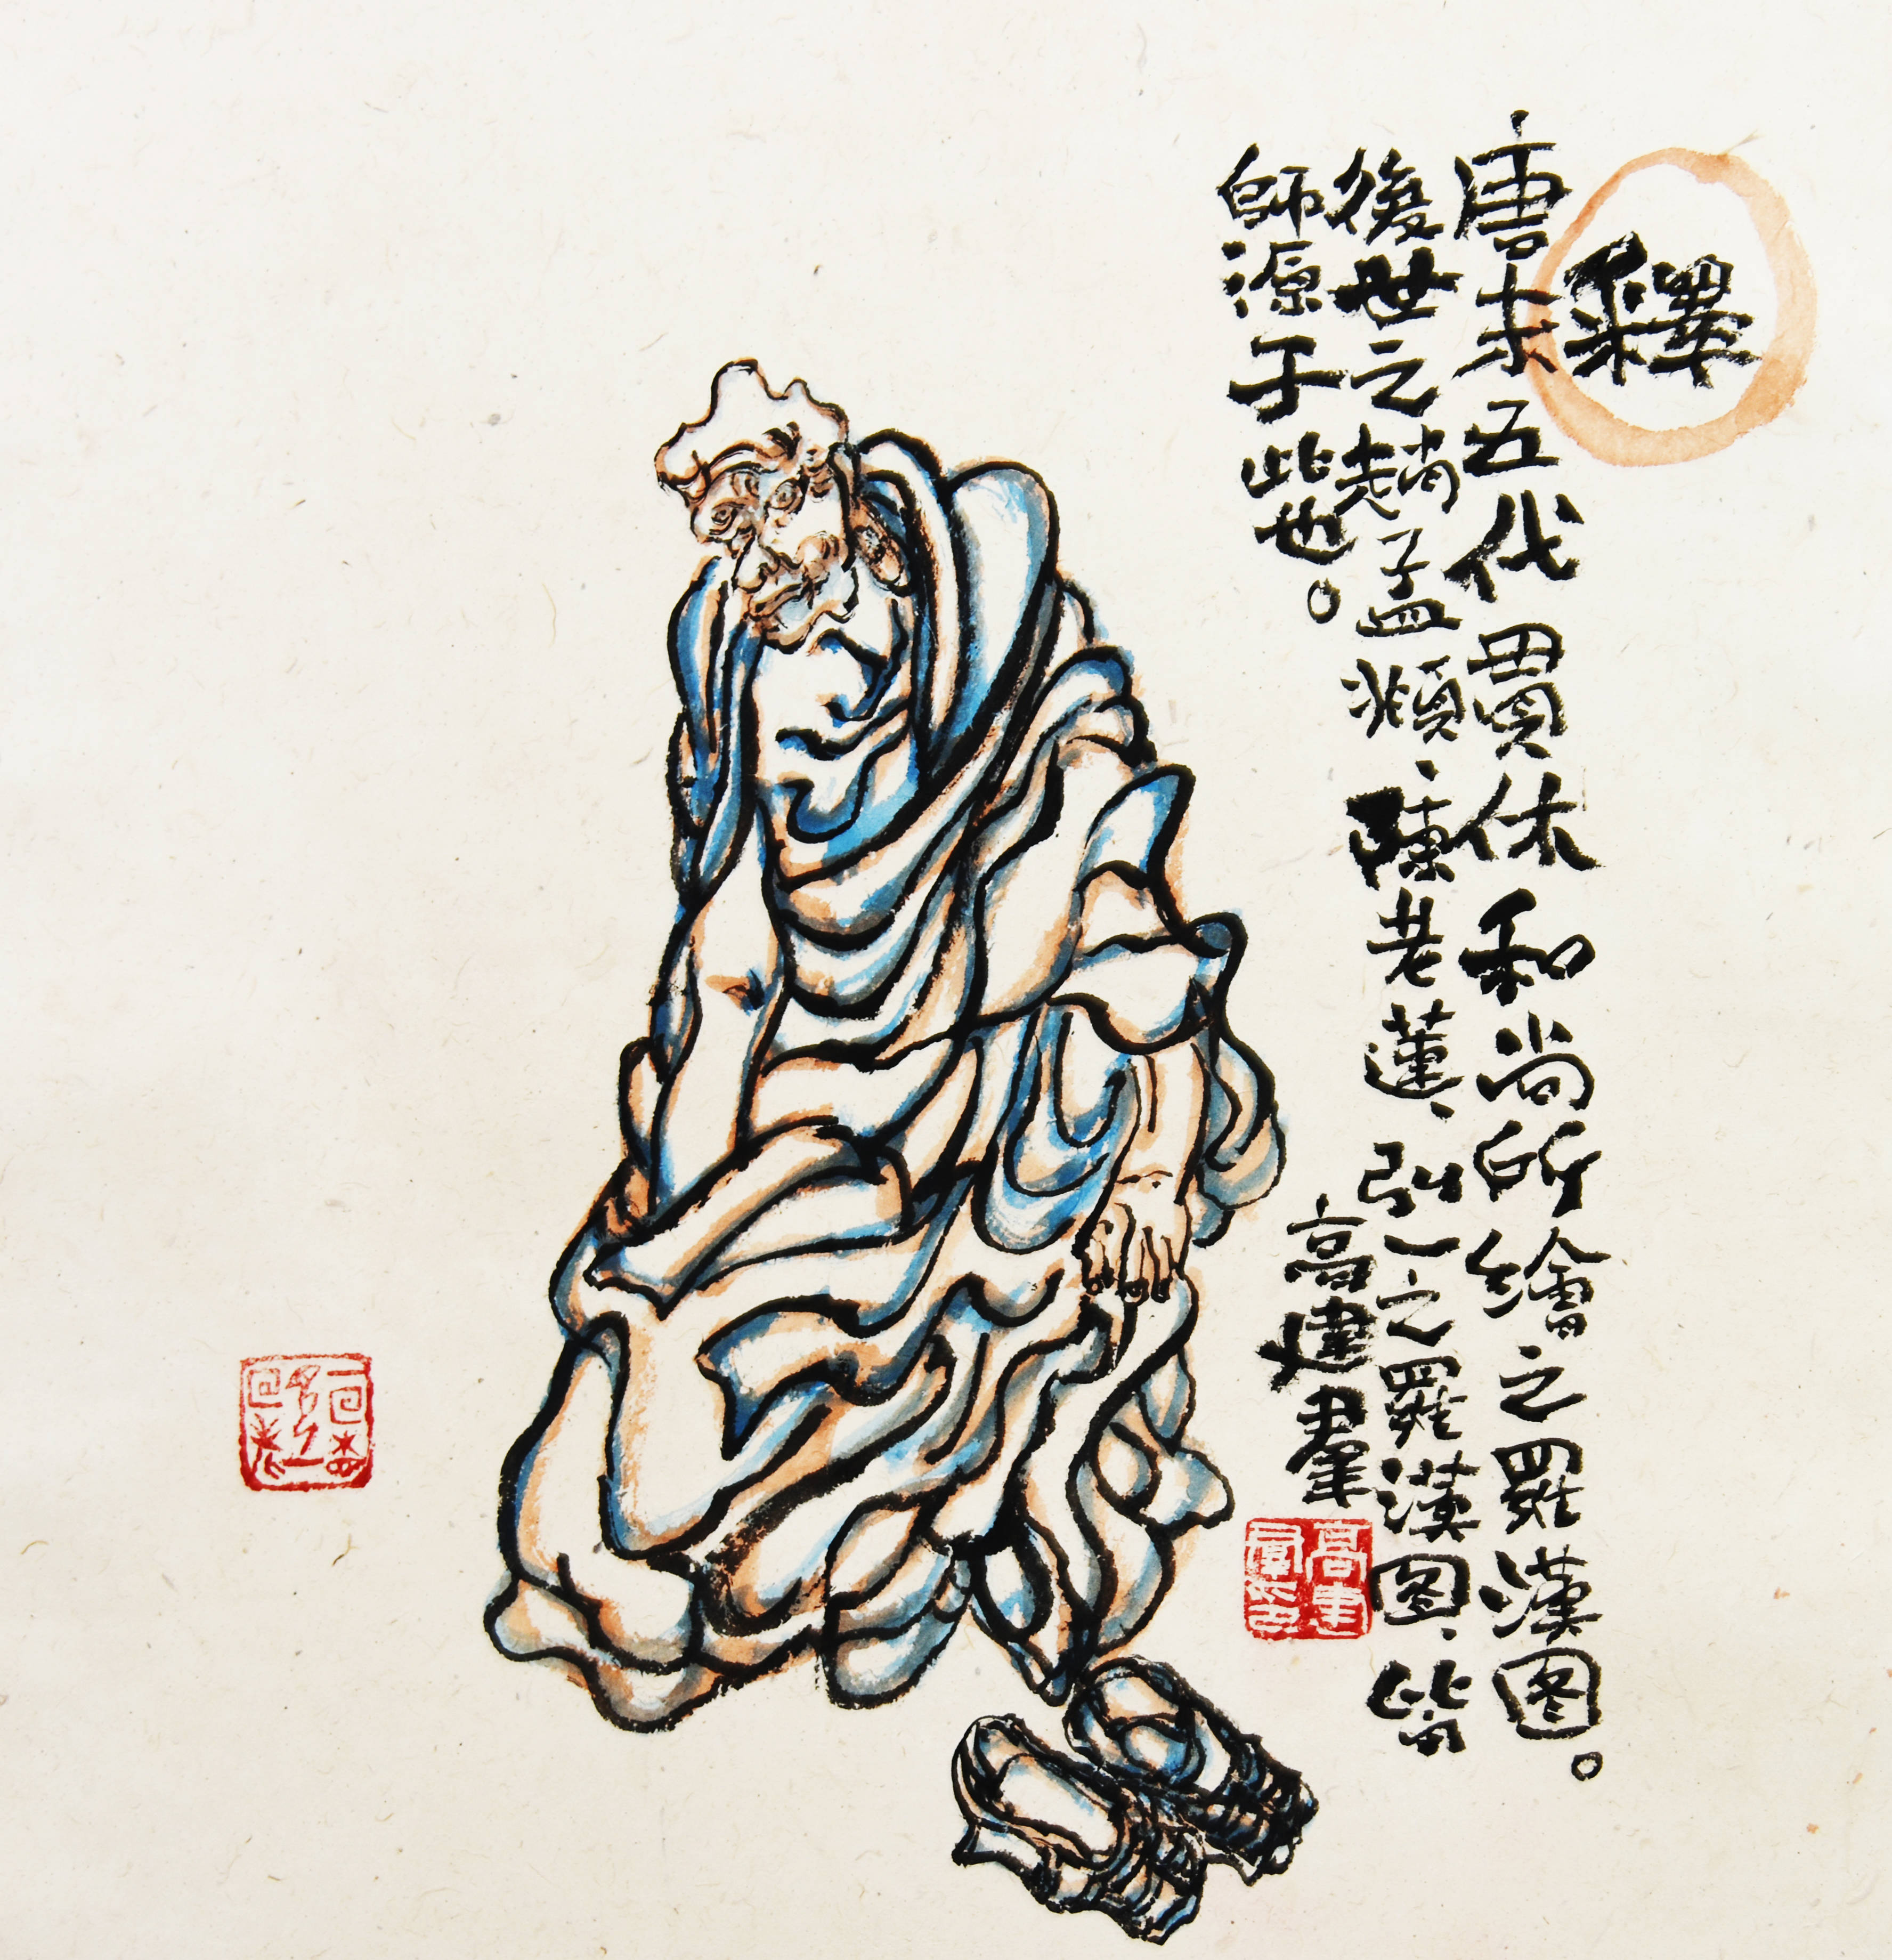 釋
唐末五代貫休和尚所繪之羅漢图。
後世之趙孟頫、陳老蓮、弘一之羅漢图、皆
師源于此也。
高建羣
高建